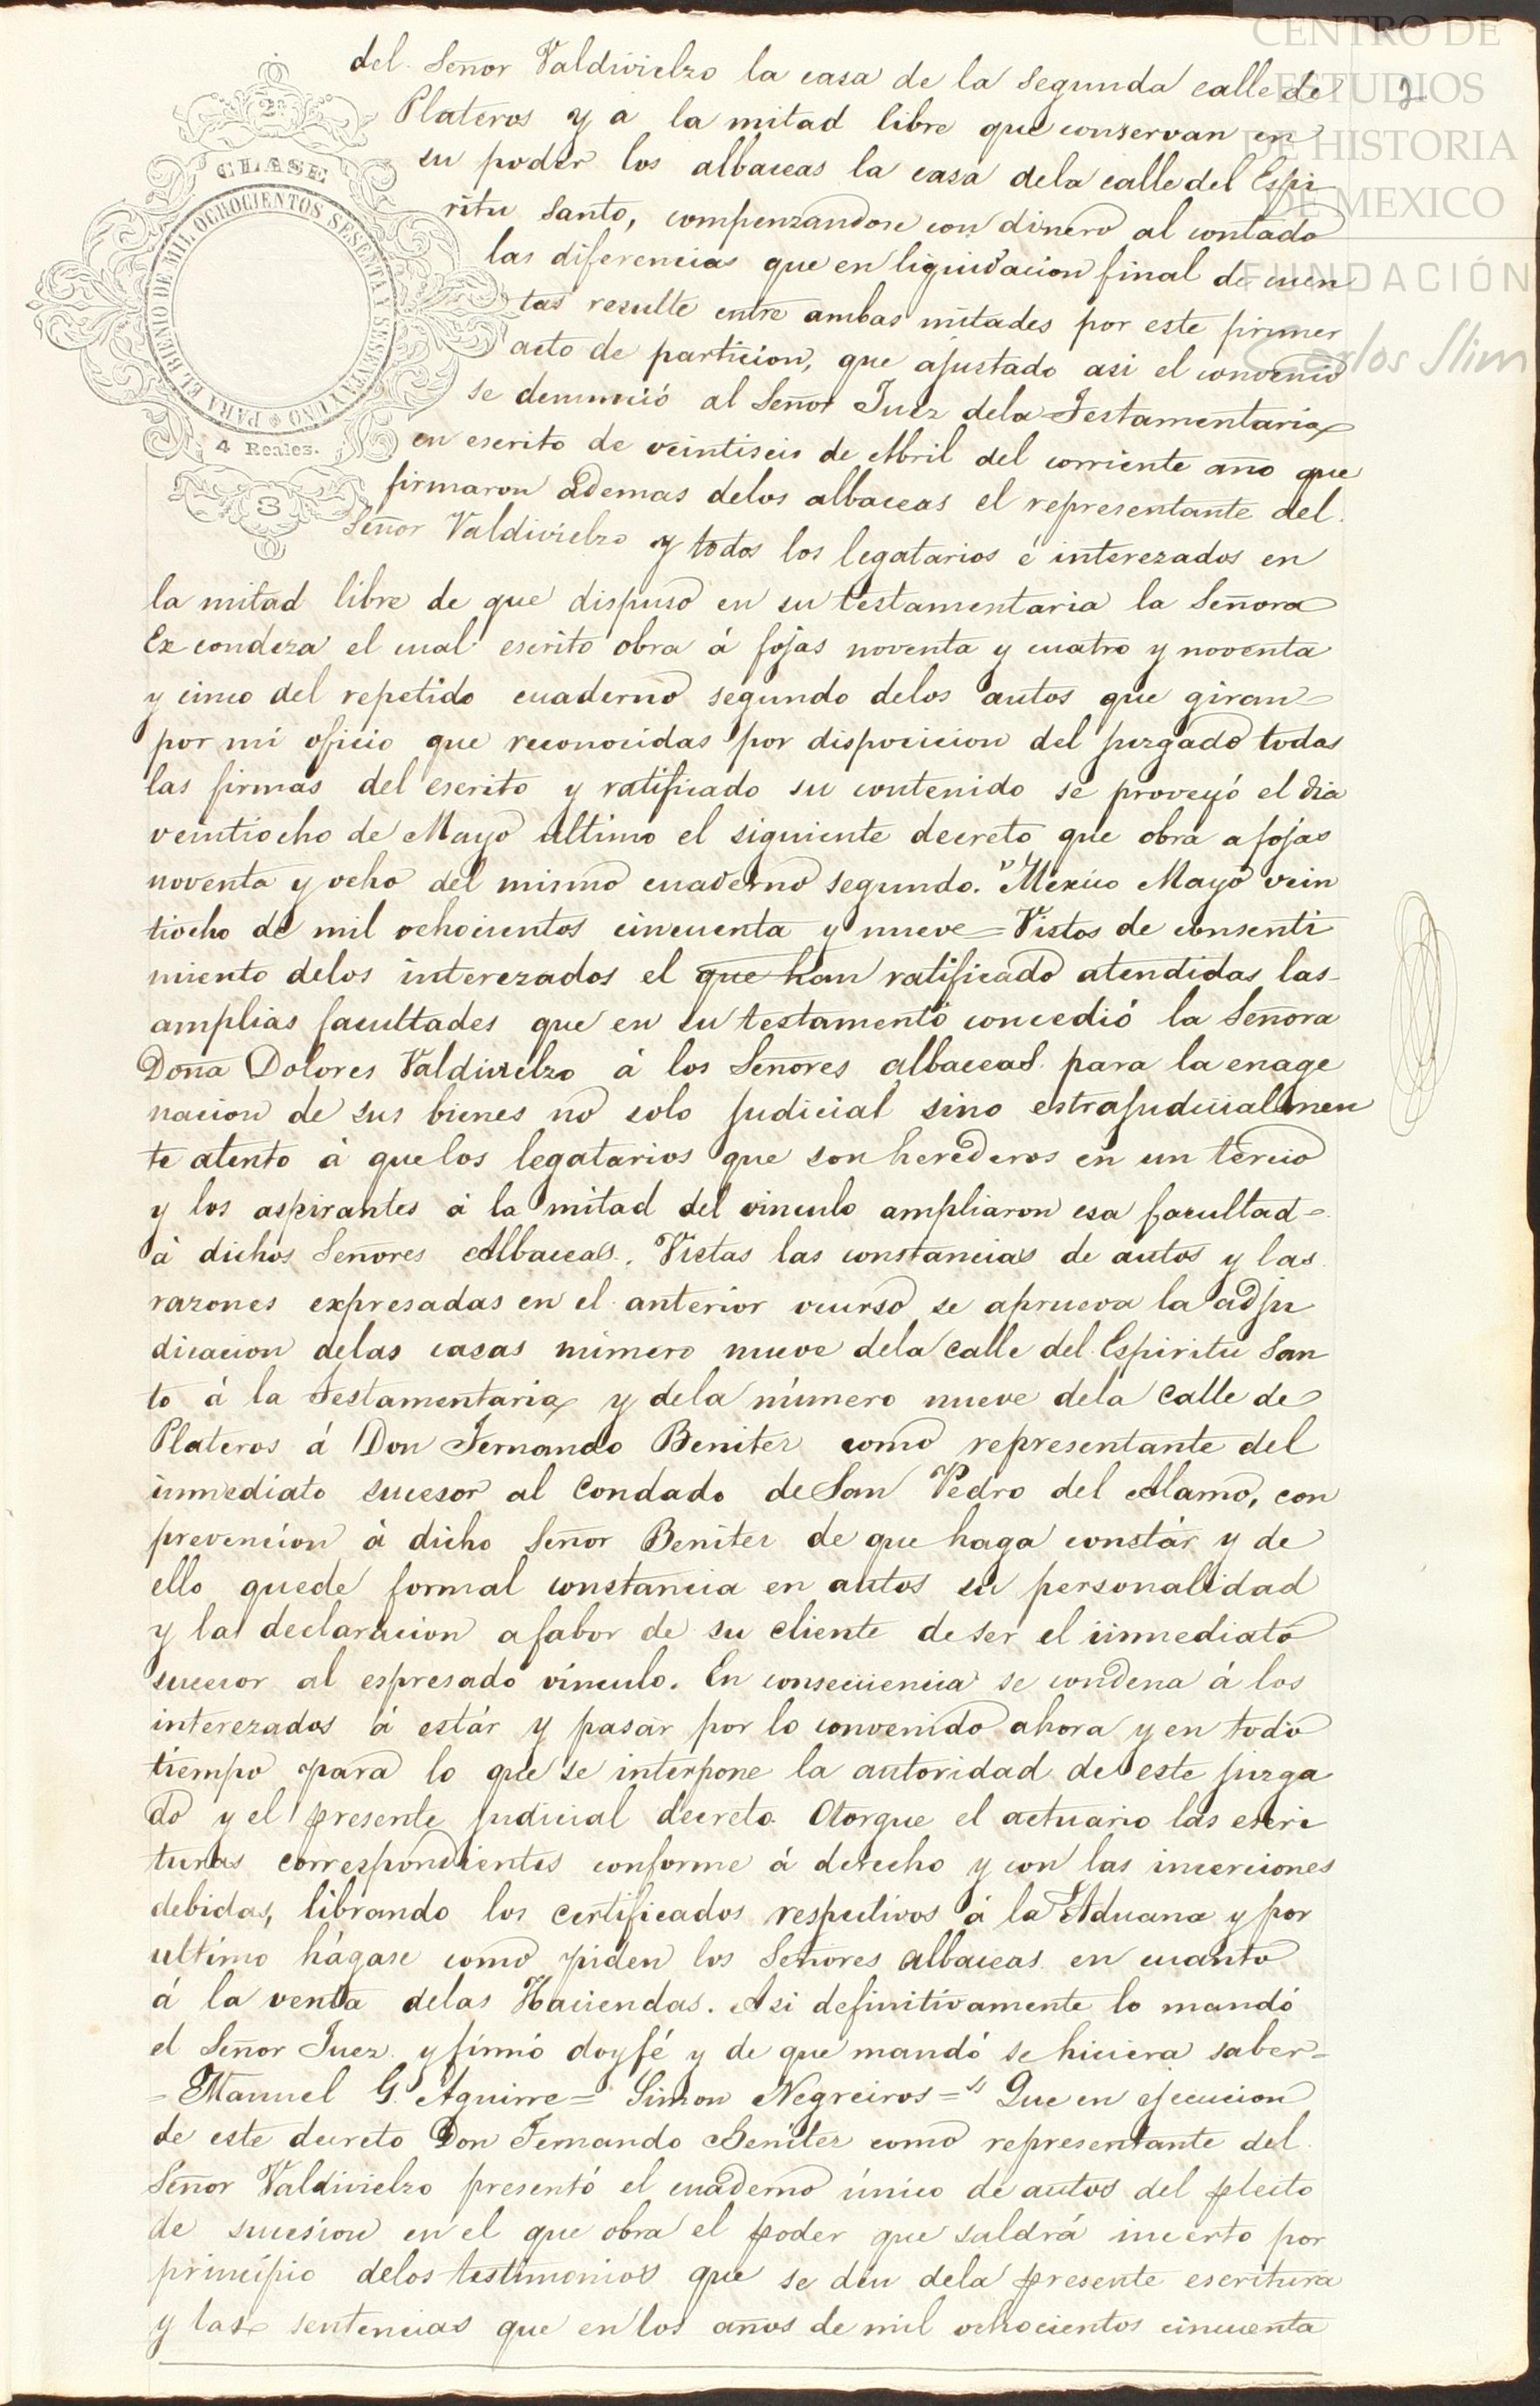 CENTRO DE
ESTUDIOS
DE HISTORIA
DE MEXICO
FUNDACIÓN
Carlos Slim
2
2a
CLASE
PARA EL BIENIO DE MIL OCHOCIENTOS SESENTA Y SESENTA Y UNO
4 Reales.
3
del Señor Valdivielzo la casa de la segunda calle de
Plateros y a la mitad libre que conservan en
su poder los albaceas la casa dela calle del Espi
ritu Santo, compenzandose con dinero al contado
las diferencias que en liquidacion final de cuen
tas resulte entre ambas mitades por este primer
acto de particion, que ajustado asi el convenio
se denunció al Señor Juez dela Testamentaria
en escrito de veintiseis de Abril del corriente año que
firmaron ademas delos albaceas el representante del
Señor Valdivielzo y todos los legatarios é interezados en
la mitad libre de que dispuso en su testamentaria la Señora
Ex condeza el cual escrito obra á fojas noventa y cuatro y noventa
y cinco del repetido cuaderno segundo delos autos que giran
por mi oficio que reconocidas por disposicion del juzgado todas
las firmas del escrito y ratificado su contenido se proveyó el dia
veintiocho de Mayo ultimo el siguiente decreto que obra a fojas
noventa y ocho del mismo cuaderno segundo. "Mexico Mayo vein
tiocho de mil ochocientos cincuenta y nueve = Vistos de consenti
miento delos interezados el que han ratificado atendidas las
amplias facultades que en su testamento concedió la Señora
Doña Dolores Valdivielzo á los Señores albaceas para la enage
nacion de sus bienes no solo judicial sino estrajudicialmen
te atento á que los legatarios que son herederos en un tercio
y los aspirantes á la mitad del vinculo ampliaron esa facultad
á dichos Señores Albaceas. Vistas las constancias de autos y las
razones expresadas en el anterior ocurso se aprueva la adju
dicacion delas casas número nueve dela calle del Espiritu San
to á la Testamentaria y dela número nueve dela calle de
Plateros á Don Fernando Benitez como representante del
inmediato sucesor al Condado de San Pedro del Alamo, con
prevencion á dicho Señor Benitez de que haga constár y de
ello quede formal constancia en autos su personalidad
y la declaracion a fabor de su cliente de ser el inmediato
sucecor al espresado vínculo. En consecuencia se condena á los
interezados á estár y pasar por lo convenido ahora y en todo
tiempo para lo que se interpone la autoridad de este juzga
do y el presente judicial decreto. Otorgue el actuario las escri
turas correspondientes conforme á derecho y con las incerciones
debidas, librando los certificados respectivos á la Aduana y por
ultimo hágase como piden los Señores albaceas en cuanto
á la venta delas Haciendas. Asi definitivamente lo mandó
el Señor Juez y firmó doy fé y de que mandó se hiciera saber=
= Manuel G. Aguirre = Simon Negreiros =" Que en ejecucion
de este decreto Don Fernando Benitez como representante del
Señor Valdivielzo presentó el cuaderno único de autos del pleito
de sucesion en el que obra el poder que saldrá incerto por
principio delos testimonios que se den dela presente escritura
y las sentencias que en los años de mil ochocientos cincuenta